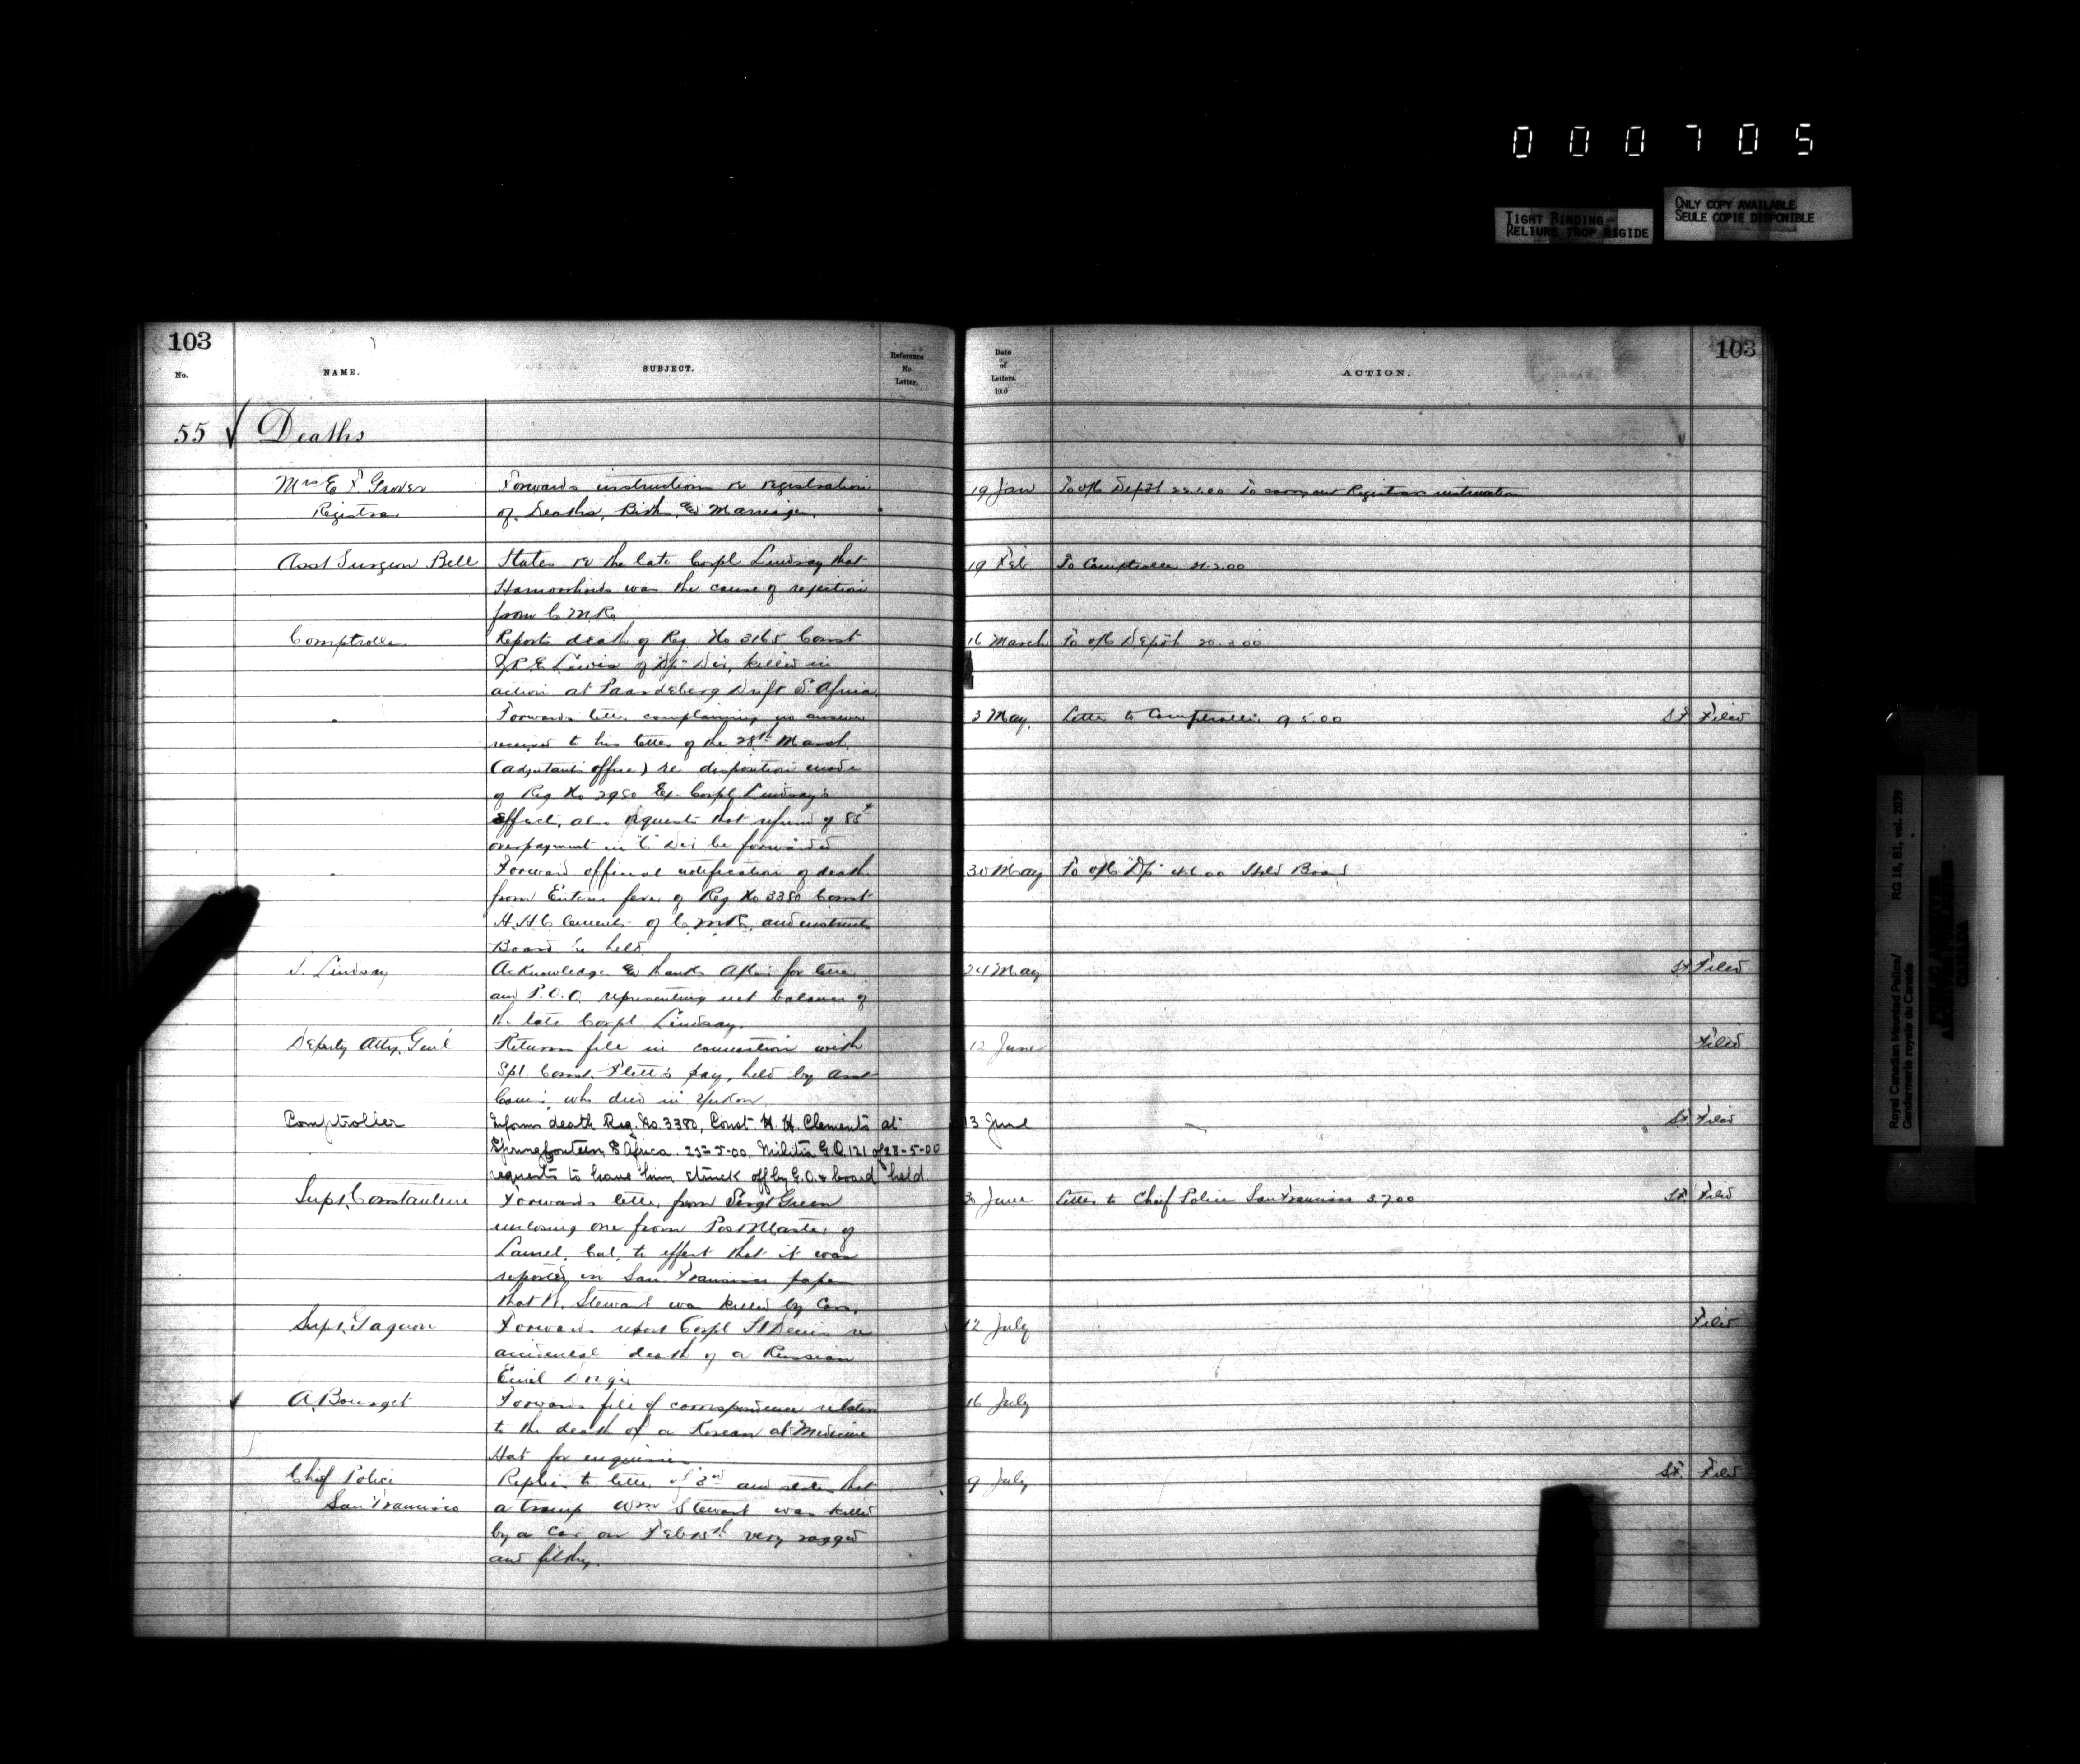 000705
TIGHT BINDING
RELIURE TROP RIGIDE
ONLY COPY AVAILABLE
SEULE COPIE DISPONIBLE
103
No.
NAME.
SUBJECT.
Reference
No
Letter.
Date
of
Letters
ACTION.
103
55 Deaths
Mrs E F. Grover
Registrar
Forwards instructions re registration
of Deaths, Births, & Marriages.
19 Jan
To o/c Depôt To carry out Registrars instruction
Asst Surgeon Bell
States re the late Corpl Lindsay that
Hamorrhoids was the cause of rejection
from C M.R.
19 Feb
To Comptroller 21.2.00
Comptroller
Reports death of Reg No 3165 Const
Lewis of "Dp" Div, killed in
action at Paardeberg Drift S. Africa
16 March
To o/c Depôt 20.3.00
Forwards letter complaining no answer
received to his letter of the 28th March
(adjutants office) re disposition made
of Reg No 2980 Ex. Corpl Lindsay's
effects, also requests that refund of
overpayment in "C" Div be forwarded
3 May.
Letter to Comptroller 9 5.00
St Filed
Forward official notification of death
from Enteric fever of Reg No 3380 Const
H. H. Clements of C. M R. and instructs
Board be held
30 May
To o/c "Dp" 4.6.00 Hold Board
Lindsay
Acknowledges & thanks for letter
and P.O.O. representing net balance of
the late Corpl Lindsay.
24 May
St Filed
Deputy Atty. Genl
Returns file in connection with
Spl. Const. Flett's pay, held by Asst
Comr, who died in Yukon
12 June
Filed
Comptroller
Informs death Reg. No. 3380, Const H. H. Clements at
Springfontein, S Africa. 23-5-00, Militia G.O. 121 of 28-5-00
requests to have him struck off by G.O. & board held
13 June
St. Filed
Supt. Constantine
Forwards letter from Sergt Green
enclosing one from Post Master of
Laurel, Cal. to effect that it was
reported in San Francisco paper
that W. Stewart was killed by Car.
30 June
Letter to Chief Police San Francisco 3.7.00
St. Filed
Supt. Gagnon
Forwards report Corpl St Denis re
accidental death of a Russian
Emil
12 July
Filed
A. Bourget
Forwards file of correspondence relative
to the death of a Korean at Medicine
Hat for enquiries
16 July
Chief Police
San Francisco
Replies to letter of 3rd and states that
a tramp Wm Stewart was killed
by a Car on Feb 15th very ragged
and filthy.
9 July
St. Filed
Royal Canadian Mounted Police/ RG 18, B1, vol. 2039
Gendarmerie royale du Canada
PUBLIC ARCHIVES
ARCHIVES PUBLIQUES
CANADA